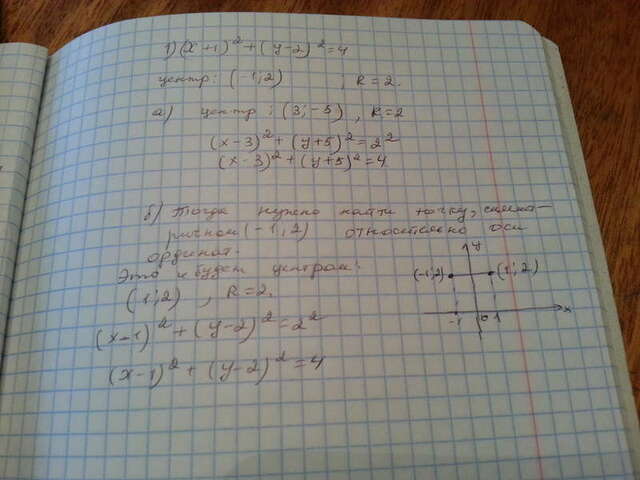 1) (x+1)² + (y-2)² = 4
центр: (-1;2) ; R = 2.
а) центр: (3;-5), R=2
(x-3)² + (y+5)² = 2²
(x-3)² + (y+5)² = 4
б) Тогда нужно найти точку, симмет-
ричном (-1;2) относительно оси
ординат.
Это и будет центром!
(1;2), R=2.
(x-1)² + (y-2)² = 2²
(x-1)² + (y-2)² = 4
y
(-1;2) (1;2)
-1 0 1 x